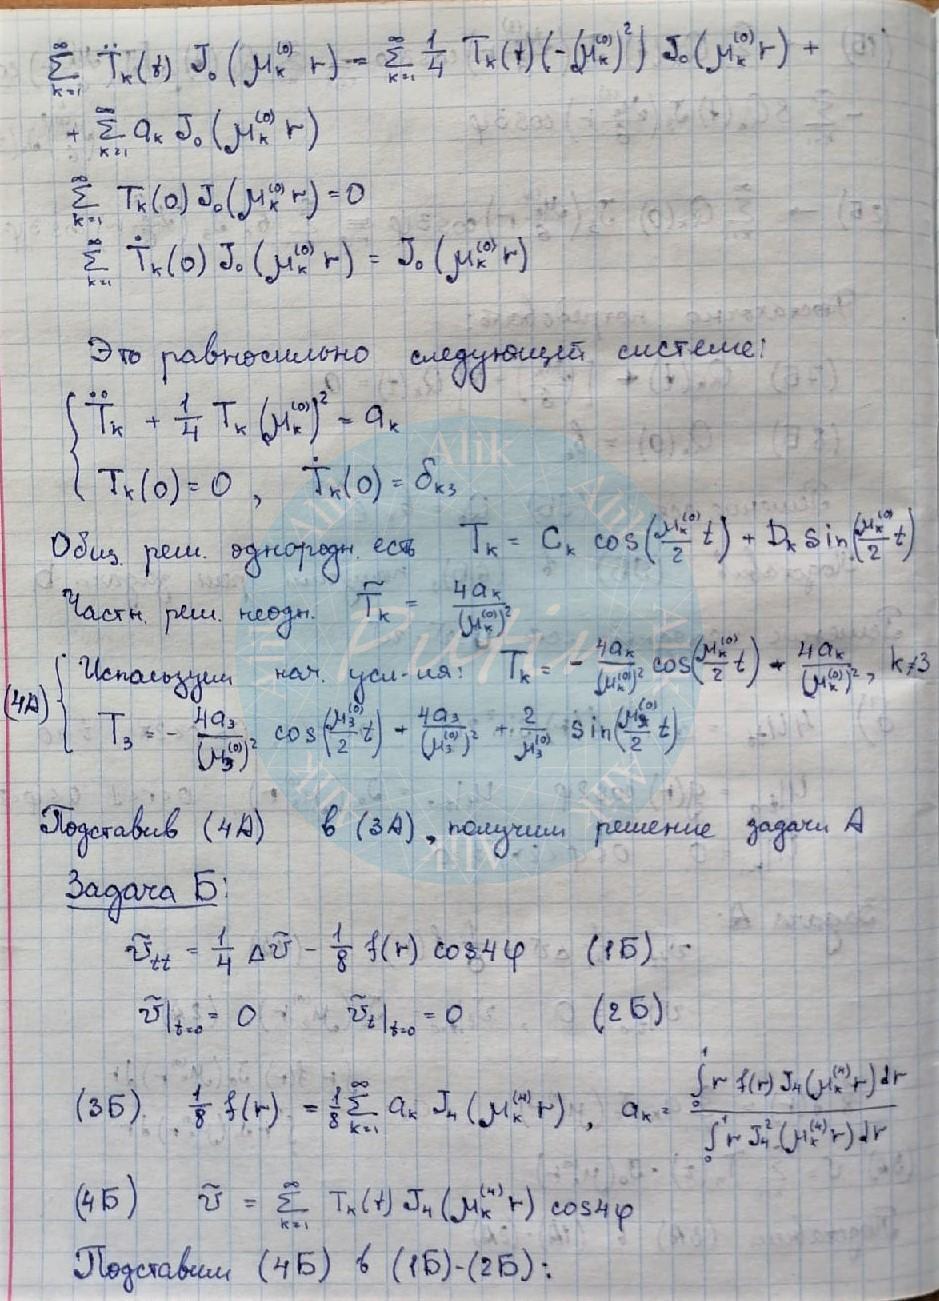 ∑_{k=1}^{∞} T̈_k(t) J₀(μ_k^{(0)} r) = ∑_{k=1}^{∞} 1/4 T_k(t) (-(μ_k^{(0)})²) J₀(μ_k^{(0)} r) +
+ ∑_{k=1}^{∞} a_k J₀(μ_k^{(0)} r)
∑_{k=1}^{∞} T_k(0) J₀(μ_k^{(0)} r) = 0
∑_{k=1}^{∞} Ṫ_k(0) J₀(μ_k^{(0)} r) = J₀(μ_k^{(0)} r)
Это равносильно следующей системе:
{ T̈_k + 1/4 T_k (μ_k^{(0)})² = a_k
T_k(0) = 0, Ṫ_k(0) = δ_{k3}
Общ. реш. однородн. есть T_k = C_k cos(μ_k^{(0)}/2 t) + D_k sin(μ_k^{(0)}/2 t)
Частн. реш. неодн. T̃_k = 4a_k/(μ_k^{(0)})²
(4А) { Используем нач. усл-ия: T_k = - 4a_k/(μ_k^{(0)})² cos(μ_k^{(0)}/2 t) + 4a_k/(μ_k^{(0)})², k≠3
T₃ = - 4a₃/(μ₃^{(0)})² cos(μ₃^{(0)}/2 t) + 4a₃/(μ₃^{(0)})² + 2/μ₃^{(0)} sin(μ₃^{(0)}/2 t)
Подставив (4А) в (3А), получим решение задачи А
Задача Б:
ṽ_{tt} = 1/4 Δṽ - 1/8 f(r) cos4φ (1Б)
ṽ|_{t=0} = 0 ṽ_t|_{t=0} = 0 (2Б)
(3Б) 1/8 f(r) = 1/8 ∑_{k=1}^{∞} a_k J₄(μ_k^{(4)} r), a_k = ∫₀¹ r f(r) J₄(μ_k^{(4)} r) dr / ∫₀¹ r J₄²(μ_k^{(4)} r) dr
(4Б) ṽ = ∑_{k=1}^{∞} T_k(t) J₄(μ_k^{(4)} r) cos4φ
Подставим (4Б) в (1Б)-(2Б):
Alik
Alik
Alik
Putin
Alik
Alik
Alik
Alik
Alik